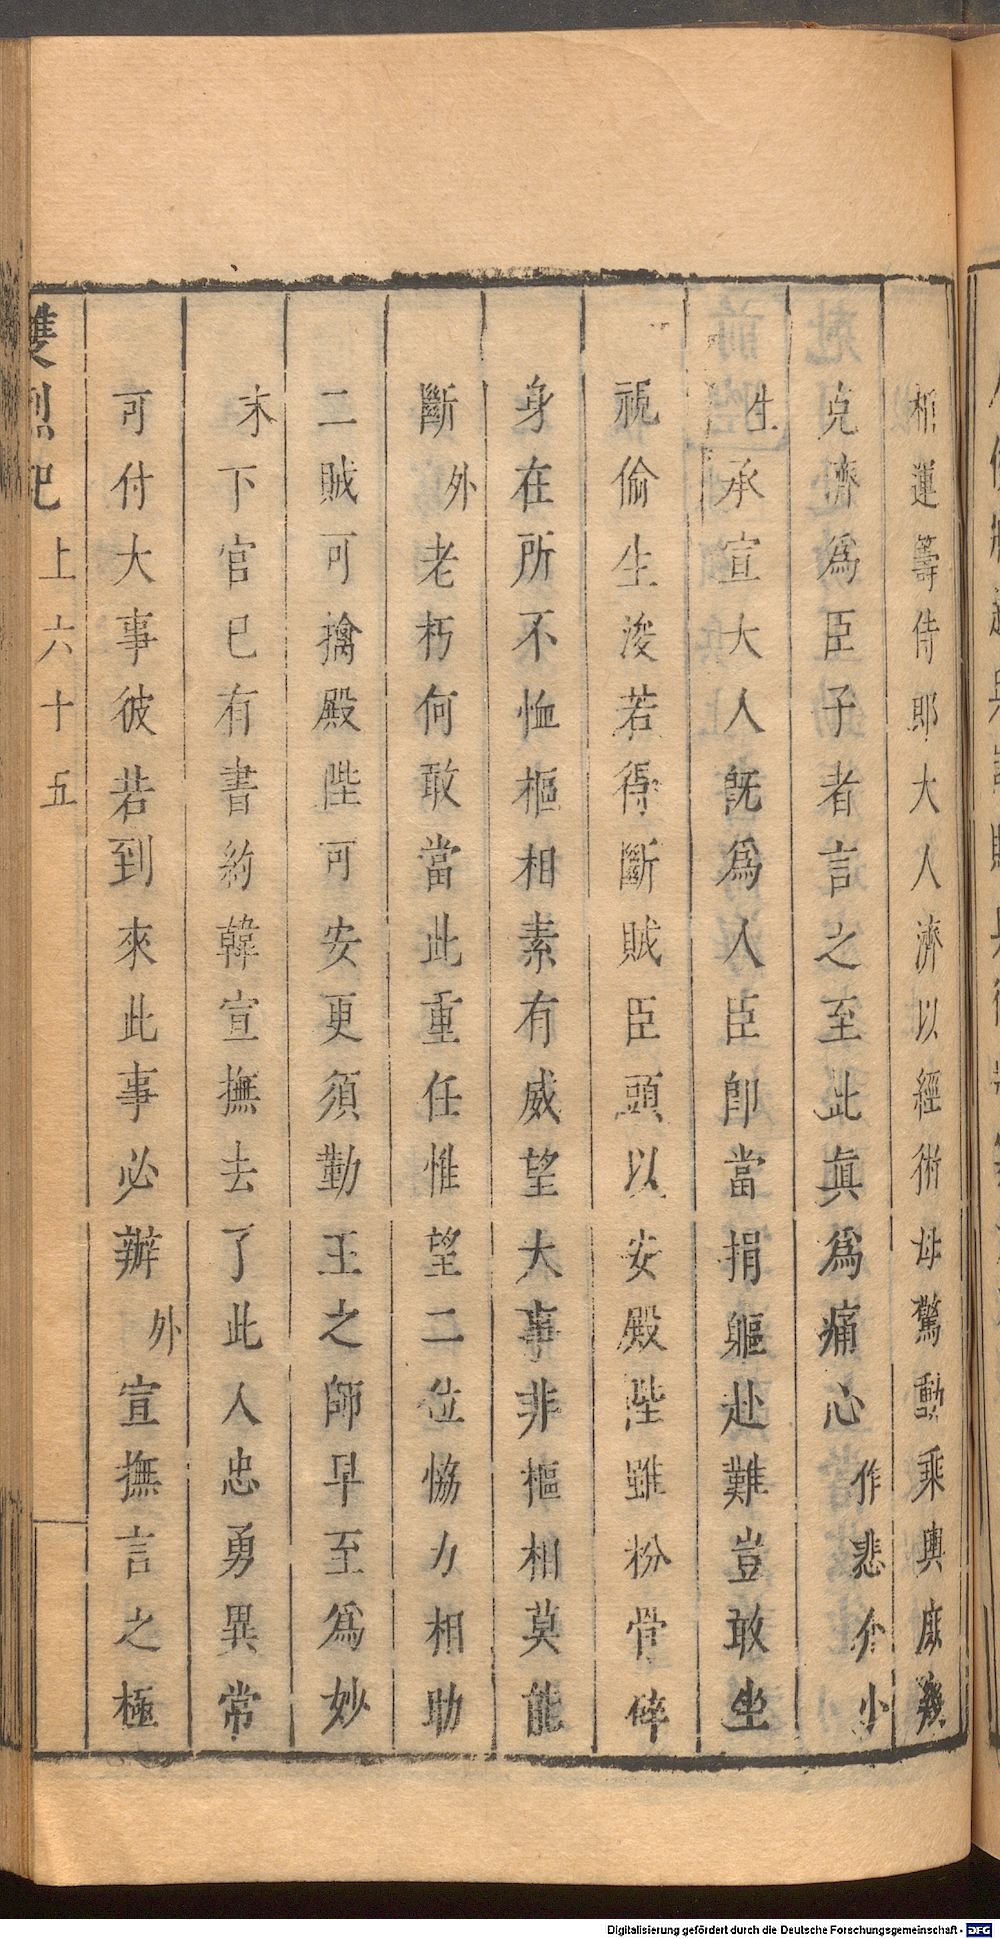 相運籌侍郎大人濟以經術毋驚動乘輿庶幾
克濟爲臣子者言之至此眞爲痛心作悲介小
生承宣大人旣爲人臣卽當捐軀赴難豈敢坐
視偷生浚若得斷賊臣頭以安殿陛雖粉骨碎
身在所不恤樞相素有威望大事非樞相莫能
斷外老朽何敢當此重任惟望二位恊力相助
二賊可擒殿陛可安更須勤王之師早至爲妙
末下官已有書約韓宣撫去了此人忠勇異常
可付大事彼若到來此事必辦外宣撫言之極
雙烈記 上 六十五
Digitalisierung gefördert durch die Deutsche Forschungsgemeinschaft - DFG